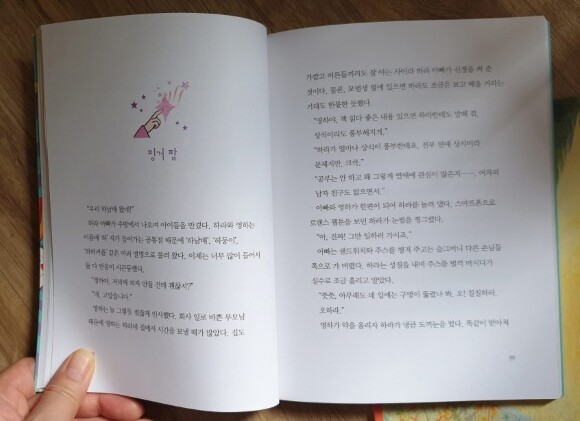 핑거 팜
"우리 하남매 왔네!"
하라 아빠가 주방에서 나오며 아이들을 반겼다. 하라와 영하는
이름에 '하' 자가 들어가는 공통점 때문에 '하남매', '하둥이',
'하하커플' 같은 여러 별명으로 불려 왔다. 이제는 너무 많이 들어서
둘 다 반응이 시큰둥했다.
"영하야, 저녁에 피자 만들 건데 괜찮지?"
"네, 고맙습니다."
영하는 늘 그렇듯 점잖게 인사했다. 회사 일로 바쁜 부모님
때문에 영하는 하라네 집에서 시간을 보낼 때가 많았다. 집도
가깝고 어른들끼리도 잘 아는 사이라 하라 아빠가 신경을 써 준
것이다. 물론, 모범생 옆에 있으면 하라도 조금은 보고 배울 거라는
기대도 한몫한 듯했다.
"영하야, 책 읽다 좋은 내용 있으면 하라한테도 말해 줘.
상식이라도 풍부해지게."
"하라가 얼마나 상식이 풍부한데요. 전부 연애 상식이라
문제지만. 크크."
"공부는 안 하고 왜 그렇게 연애에 관심이 많은지……. 어차피
남자 친구도 없으면서."
아빠와 영하가 한편이 되어 하라를 놀려 댔다. 스마트폰으로
로맨스 웹툰을 보던 하라가 눈썹을 찡그렸다.
"아, 진짜! 그만 일하러 가시죠."
아빠는 샌드위치와 주스를 챙겨 주고는 슬그머니 다른 손님들
쪽으로 가 버렸다. 하라는 성질을 내며 주스를 벌컥 마시다가
실수로 조금 흘리고 말았다.
"쯧쯧, 아무래도 네 입에는 구멍이 뚫렸나 봐. 오! 칠칠하라.
오하라."
영하가 약을 올리자 하라가 냉큼 도끼눈을 떴다. 똑같이 받아쳐